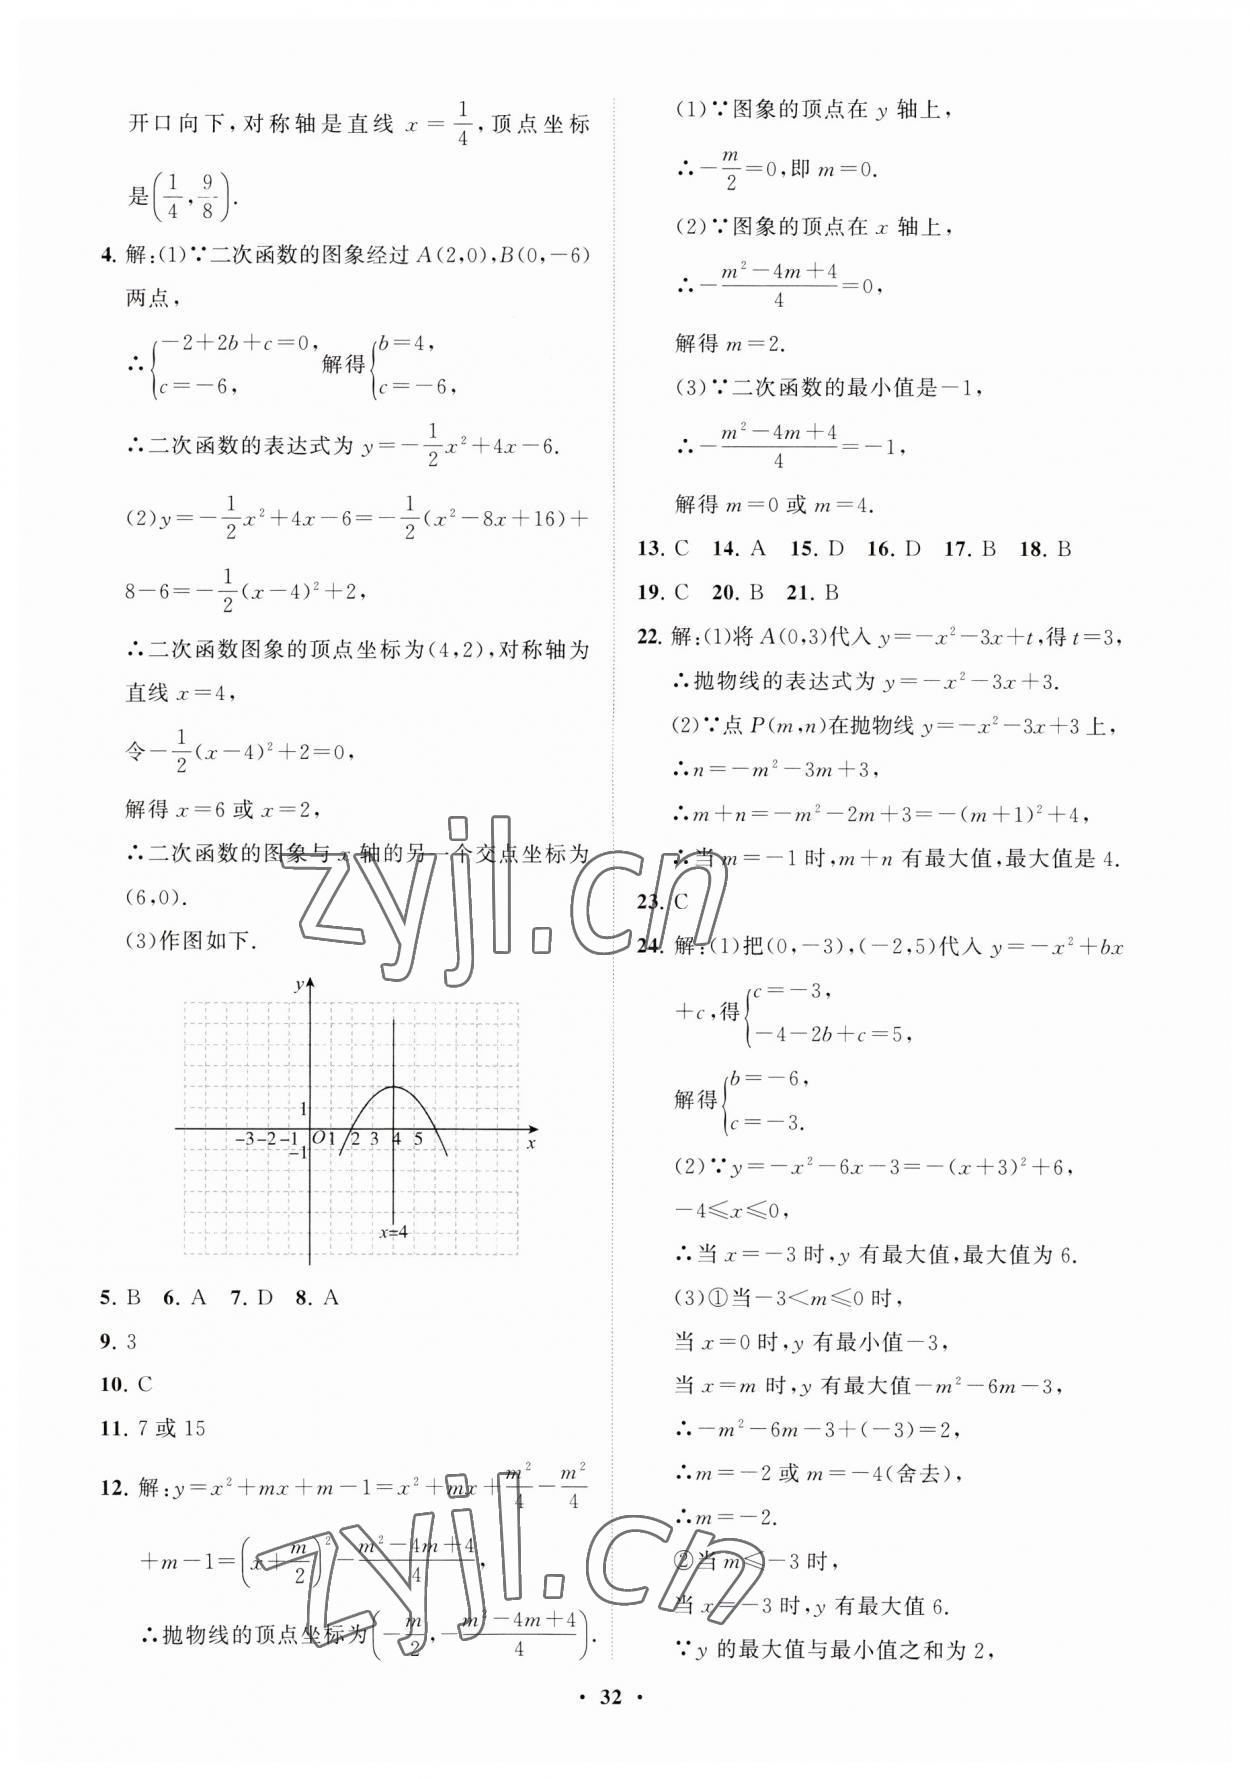 开口向下,对称轴是直线 x=1/4,顶点坐标
是(1/4,9/8).
4. 解:(1)∵二次函数的图象经过 A(2,0),B(0,-6)
两点,
∴{-2+2b+c=0, c=-6, 解得{b=4, c=-6,
∴二次函数的表达式为 y=-1/2x²+4x-6.
(2)y=-1/2x²+4x-6=-1/2(x²-8x+16)+
8-6=-1/2(x-4)²+2,
∴二次函数图象的顶点坐标为(4,2),对称轴为
直线 x=4,
令-1/2(x-4)²+2=0,
解得 x=6 或 x=2,
∴二次函数的图象与 x 轴的另一个交点坐标为
(6,0).
(3)作图如下.
y
1
-3 -2 -1 O 1 2 3 4 5 x
-1
x=4
5. B 6. A 7. D 8. A
9. 3
10. C
11. 7 或 15
12. 解:y=x²+mx+m-1=x²+mx+m²/4-m²/4
+m-1=(x+m/2)²-(m²-4m+4)/4,
∴抛物线的顶点坐标为(-m/2,-(m²-4m+4)/4).
(1)∵图象的顶点在 y 轴上,
∴-m/2=0,即 m=0.
(2)∵图象的顶点在 x 轴上,
∴-(m²-4m+4)/4=0,
解得 m=2.
(3)∵二次函数的最小值是-1,
∴-(m²-4m+4)/4=-1,
解得 m=0 或 m=4.
13. C 14. A 15. D 16. D 17. B 18. B
19. C 20. B 21. B
22. 解:(1)将 A(0,3)代入 y=-x²-3x+t,得 t=3,
∴抛物线的表达式为 y=-x²-3x+3.
(2)∵点 P(m,n)在抛物线 y=-x²-3x+3 上,
∴n=-m²-3m+3,
∴m+n=-m²-2m+3=-(m+1)²+4,
∴当 m=-1 时,m+n 有最大值,最大值是 4.
23. C
24. 解:(1)把(0,-3),(-2,5)代入 y=-x²+bx
+c,得{c=-3, -4-2b+c=5,
解得{b=-6, c=-3.
(2)∵y=-x²-6x-3=-(x+3)²+6,
-4≤x≤0,
∴当 x=-3 时,y 有最大值,最大值为 6.
(3)①当-3<m≤0 时,
当 x=0 时,y 有最小值-3,
当 x=m 时,y 有最大值-m²-6m-3,
∴-m²-6m-3+(-3)=2,
∴m=-2 或 m=-4(舍去),
∴m=-2.
②当 m≤-3 时,
当 x=-3 时,y 有最大值 6.
∵y 的最大值与最小值之和为 2,
· 32 ·
zyjl.cn
zyjl.cn